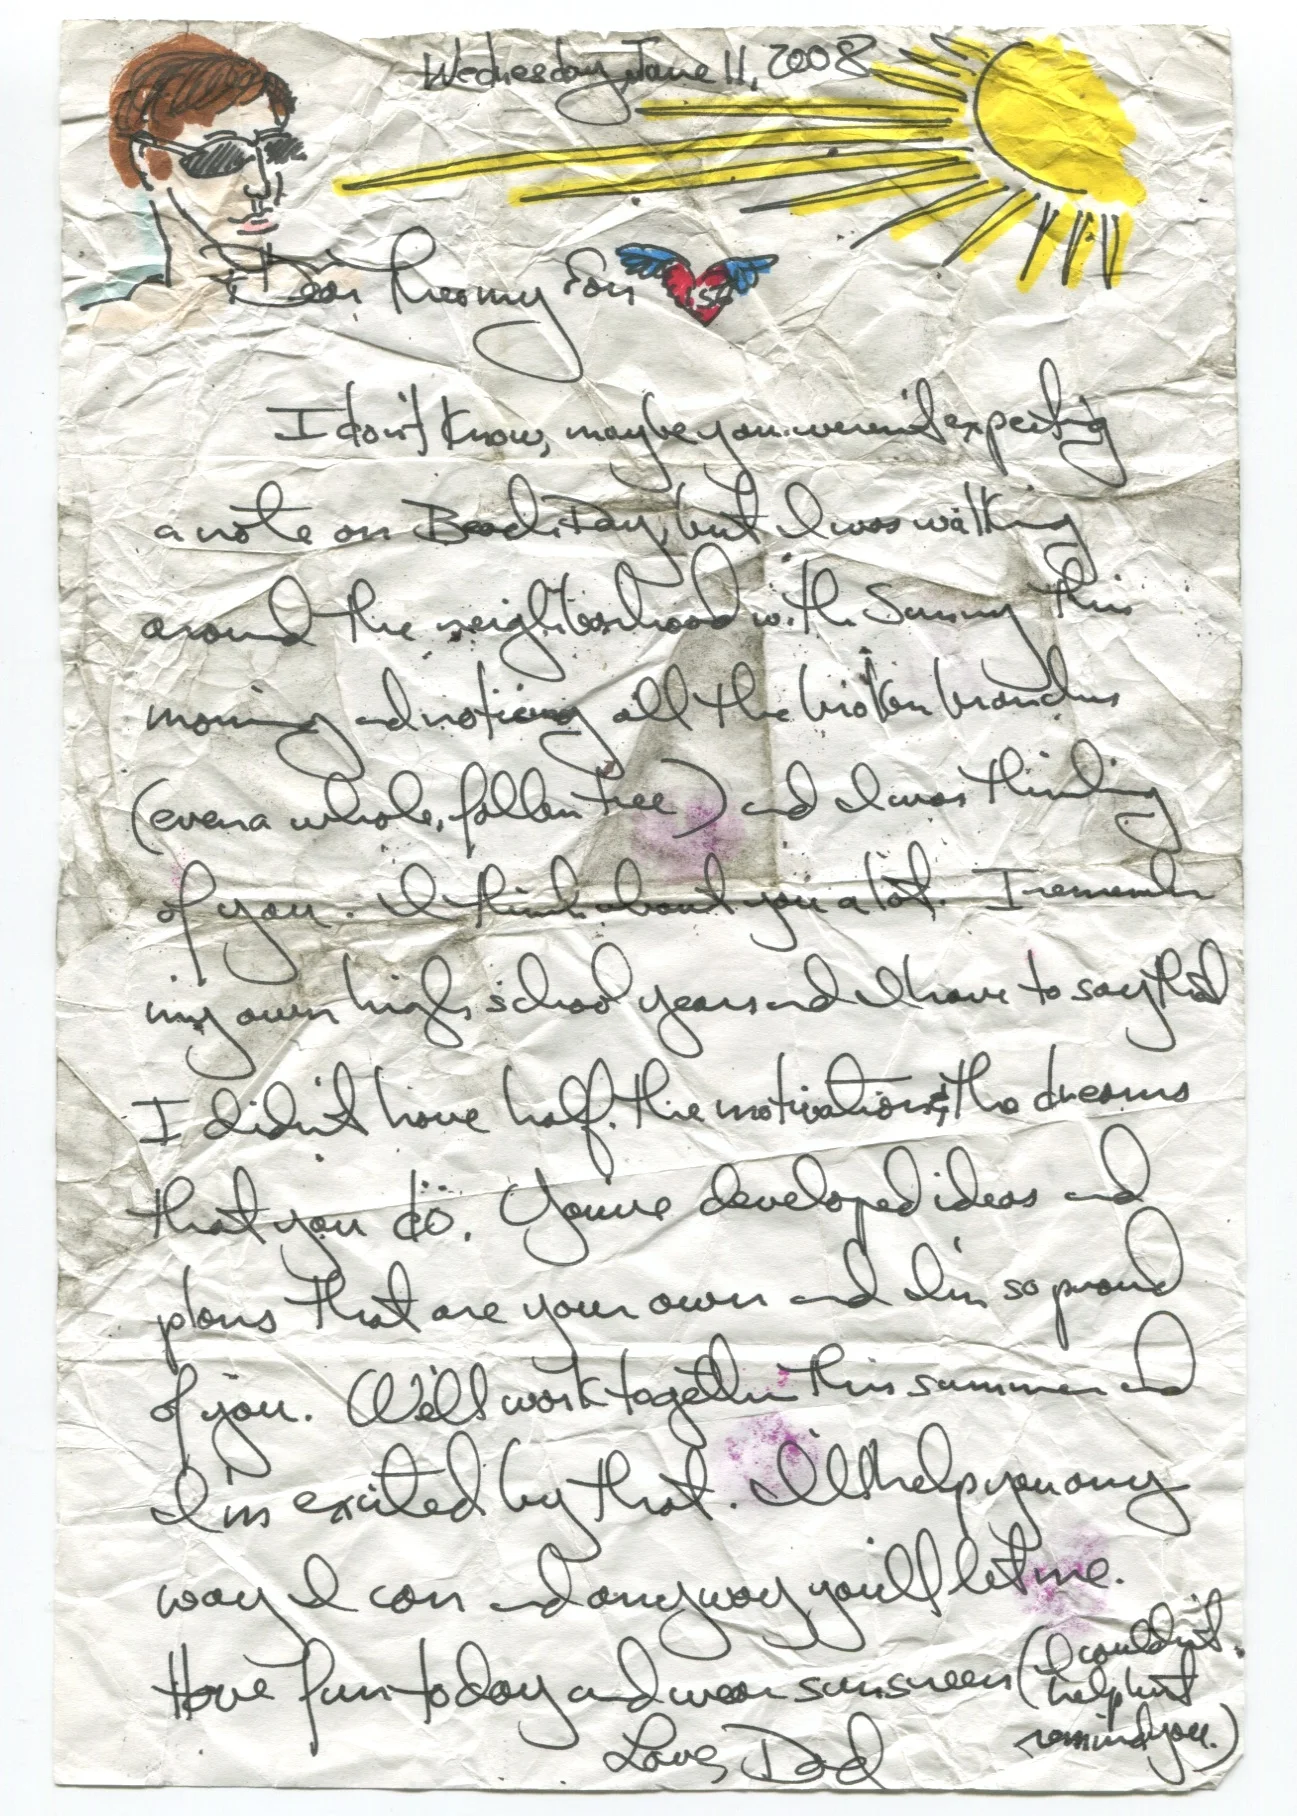 Wednesday, June 11, 2008
Dear Theamy Eon
I don't know, maybe you weren't expecting
a note on Beach Day, but I was walking
around the neighborhood with Sunny this
morning and noticing all the broken branches
(even a whole, fallen tree) and I was thinking
of you. I think about you a lot. I remember
my own high school years and I have to say that
I didn't have half the motivation & the dreams
that you do. You've developed ideas and
plans that are your own and I'm so proud
of you. We'll work together this summer and
I'm excited by that. I'll help you any
way I can and any way you'll let me.
Have fun today and wear sunscreen (I couldn't
help but
remind you.)
Love, Dad